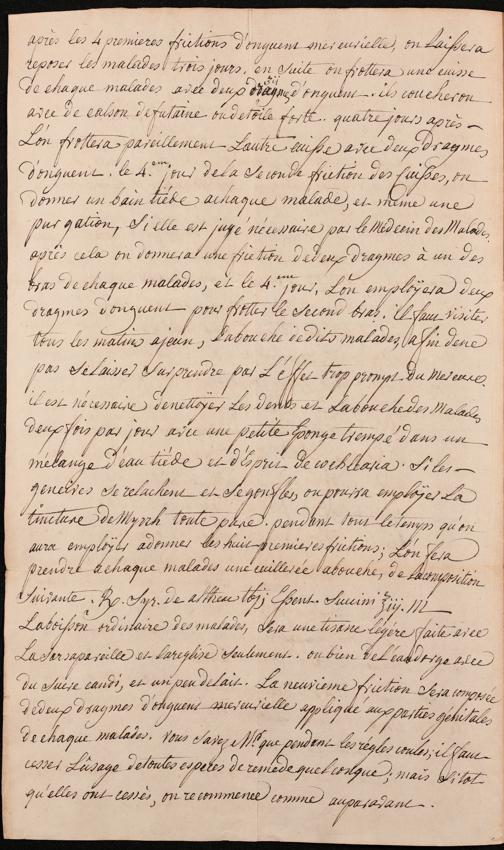 après les 4 premieres frictions d'onguent mercurielle, on laissera
reposer les malades trois jours. en suite on frottera une cuisse
de chaque malades avec deux d'onguent. ils coucheron
avec de calson de futaine ou detoile forte. quatre jours après -
L'on frottera pareillement L'autre cuisse avec deux Dragmes
d'onguent. le 4.em jour de la Seconde friction des Cuisses, on
donner un bain tiède achaque malade, et même une
purgation, Si elle est jugé nécessaire par le Médecin des Malades,
après cela on donnera une friction de deux dragmes à un des
bras de chaque malades, et le 4.eme jour, L'on employera deux
dragmes d'onguent pour frotter le Second bras. il faut visiter
tous les matins ajeun, Labouche dedits malades, afin dene
pas Selaisser Surprendre par L'éffet trop prompt du Mercure.
il est nécessaire denettoyer Les dents et Labouche des Malades
deux fois par jour avec une petite Eponge trempé dans un
mélange d'eau tiède et d'Esprit de cochlearia. Si les -
gencives se relachent et Se gonfles, on pourra employer La
tincture de Myrrh toute pure. pendant tout le temps qu'on
aura employés adonner les huit premieres frictions; L'on fera
prendre achaque malades une cuillerée abouche, de la composition
Suivante. Rx. Syr. de althea Essent. Succini ʒiij. M
Laboisson ordinaire des malades, Sera une tisane légére faite avec
La Sarsapareille et lareglise Seulement. ou bien de L'eau dorge avec
du Sucre candi, et un peu delait. La neuvieme friction Sera composée
de deux dragmes d'onguent mercurielle appliqué aux parties génitales
de chaque malades. vous Savez Mr que pendant les régles coules, il faut
cesser L'usage detoutes especes de remède quelconque; mais Sitot
qu'elles ont cessés, on recommence comme auparavant.